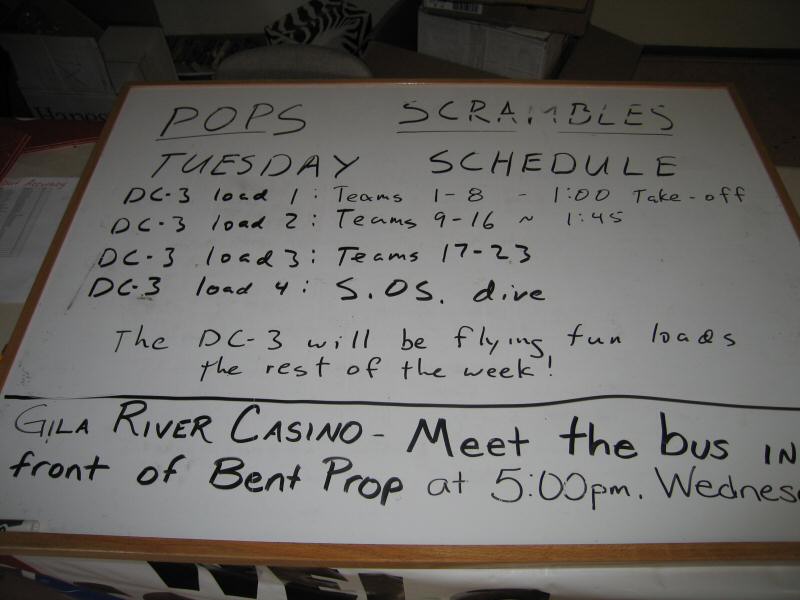 POPS SCRAMBLES
TUESDAY SCHEDULE
DC-3 load 1: Teams 1-8 - 1:00 Take-off
DC-3 load 2: Teams 9-16 ~ 1:45
DC-3 load 3: Teams 17-23
DC-3 load 4: S.O.S. dive
The DC-3 will be flying fun loads
the rest of the week!
GILA RIVER CASINO - Meet the bus IN
front of Bent Prop at 5:00pm. Wednes